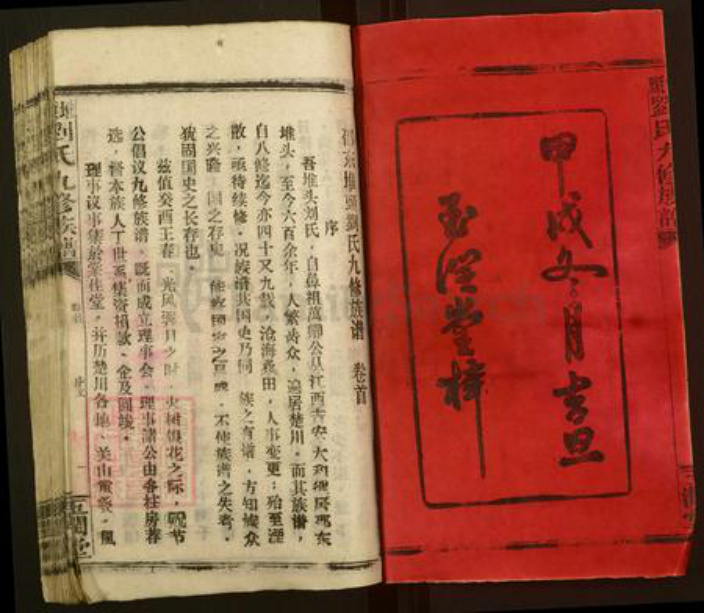 甲戌冬月吉旦
玉潤堂梓
劉氏九修族譜
邵東堆頭劉氏九修族谱 卷首
序
吾堆头刘氏，自鼻祖萬卿公从江西吉安
堆头，至今六百余年，人繁齿众，遍居楚川。而其族谱，
自八修迄今亦四十又九载，沧海桑田，人事变更；殆至湮
散，亟待续修。况族谱共国史乃同 族之有谱，方知族众
之兴隆 国之存史 不使族谱之失考，
犹固国史之长存也。
兹值癸酉王春，光风霁月之时，火树银花之际，
公倡议九修族谱，既而成立理事会，理事诸公由各柱房荐
选，督本族人丁世系，集资捐款，全及圆竣。
理事议事集於
堂，并历楚川各地、关山
劉氏九修族譜
卷首
序文
一
玉潤堂